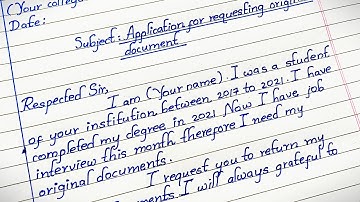 (Your colleg
Date:
Subject: Application for requesting original
document
Respected Sir,
I am (Your name). I was a student
of your institution between 2017 to 2021. I have
completed my degree in 2021. Now I have job
interview this month therefore I need my
original documents.
I request you to return my
ments. I will always grateful to